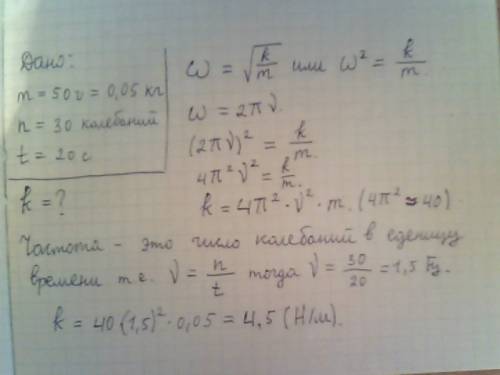 Дано:
m = 50г = 0,05 кг
n = 30 колебаний
t = 20 с
k = ?
ω = √(k/m) или ω² = k/m.
ω = 2πν.
(2πν)² = k/m.
4π²ν² = k/m.
k = 4π² · ν² · m. (4π² ≈ 40).
Частота - это число колебаний в еденицу
времени т.е. ν = n/t тогда ν = 30/20 = 1,5 Гц.
k = 40 (1,5)² · 0,05 = 4,5 (Н/м).